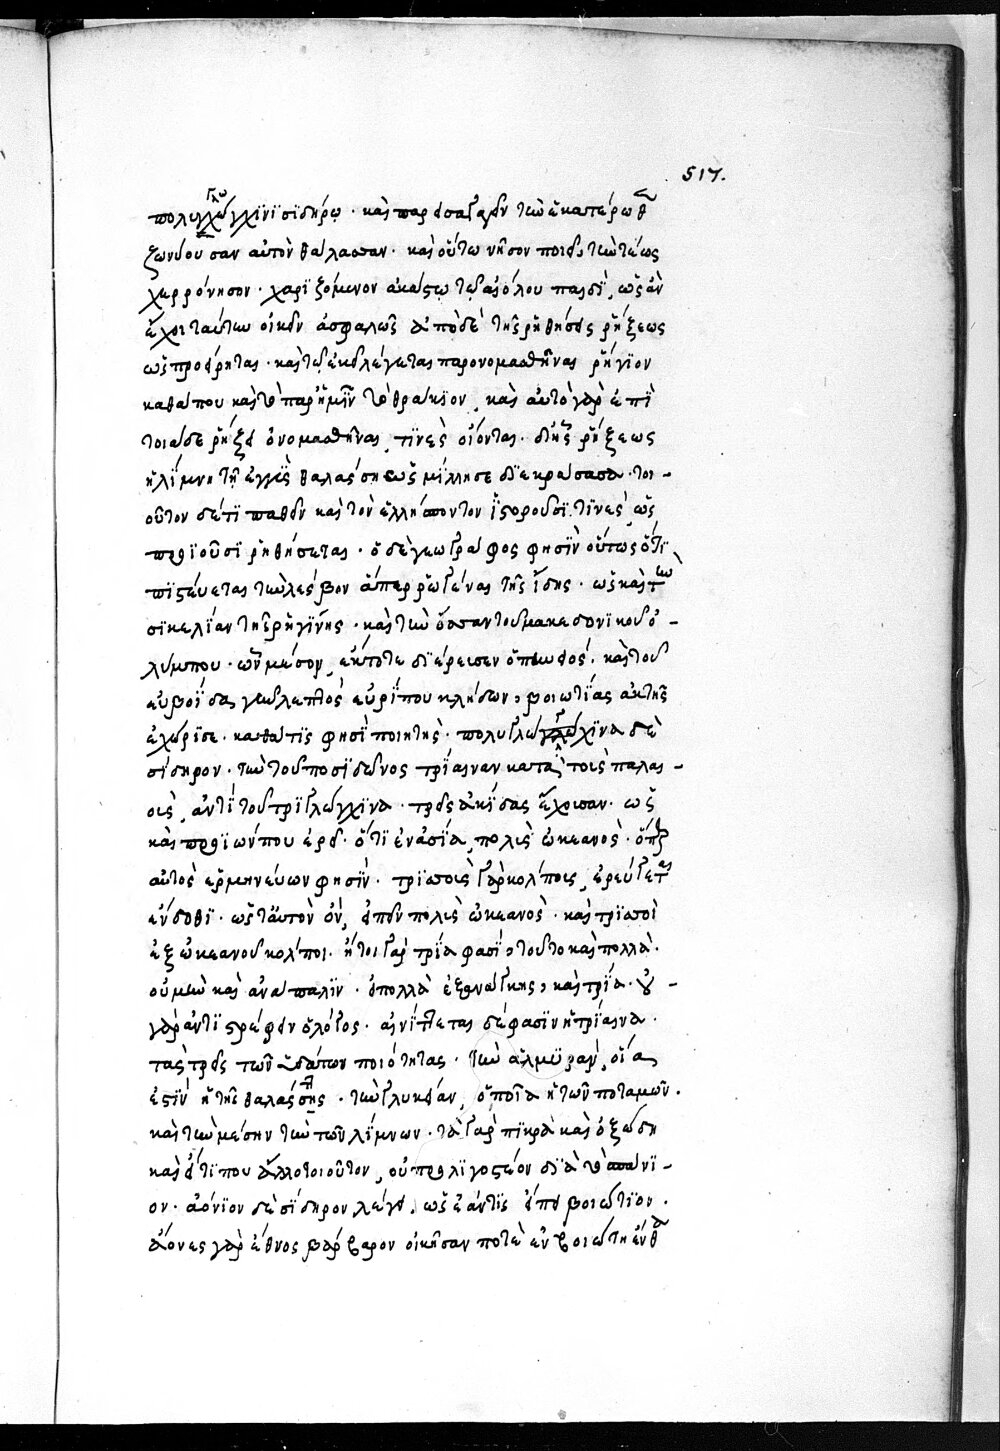 517.
πολυγλώχινι σιδήρῳ· καὶ παρεισαγαγεῖν τὴν ἑκατέρωθεν
ζωννύουσαν αὐτὸν θάλασσαν· καὶ οὕτω νῆσον ποιεῖ, τὴν τέως
χερρόνησον· χαριζόμενον ἀκάστῳ τῷ αἰόλου παιδί, ὡς ἂν
ἔχοι ταύτην οἰκεῖν ἀσφαλῶς ἀπὸ δὲ τῆς ῥηθείσης ῥήξεως
ὡς προείρηται· καὶ τὸ ἐκεῖ λέγεται παρονομασθῆναι ῥήγιον
καθά που καὶ τὸ παρ' ἡμῖν τὸ θράκιον, καὶ αὐτὸ γὰρ ἐπὶ
τοιᾷδε ῥήξει ὀνομασθῆναι, τινὲς οἴονται· δι' ἧς ῥήξεως
ἡ λίμνη τῇ ἐγγὺς θαλάσσῃ ὡμίλησε διεκραγεῖσα· τοι-
οῦτον δέ τι παθεῖν καὶ τὸν ἑλλήσποντον ἱστοροῦσί τινες, ὡς
προϊοῦσι ῥηθήσεται· ὁ δὲ γεωγράφος φησὶν οὕτως ὅτι
πιστεύεται τὴν λέσβον ἀπερρωγέναι τῆς ἴδης· ὡς καὶ τὴν
σικελίαν τῆς ῥηγίνης· καὶ τὴν ὄσσαν τοῦ μακεδονικοῦ ὀ-
λύμπου· ὧν μέσον, ἐκτότε διέρεισεν ὁ πηνειός· καὶ τοῦ
εὐβοΐδα γεῦν λεπτὸς εὐρίπου κλύδων, βοιωτίας ἀκτῆς
ἐχώρισε· καθά τις φησὶ ποιητής· πολυγλώχινα δὲ
σίδηρον· τὴν τοῦ ποσειδῶνος τρίαιναν κατὰ τοὺς παλαι-
οὺς, ἀντὶ τοῦ τριγλώχινα· τρεῖς ἀκίδας ἔχουσαν· ὡς
καὶ προϊών που ἐρεῖ· ὅτι ἐν ἀσίᾳ, πολὺς ὠκεανός· ὅπερ
αὐτὸς ἑρμηνεύων φησίν· τρισσοὺς γὰρ κόλπους, ἐρεύγεται
ἔνδοθι· ὡς ταὐτὸν ὂν, εἰπεῖν πολὺς ὠκεανὸς· καὶ τρισσοὶ
ἐξ ὠκεανοῦ κόλποι· ἤτοι γὰρ τρία φασί, τοῦτο καὶ πολλά·
οὐ μὴν καὶ ἀνάπαλιν· εἰ πολλὰ ἐξ ἀνάγκης, καὶ τρία· οὐ -
γὰρ ἀντιστρέφειν ὁ λόγος· αἰνίττεται δέ φασιν ἡ τρίαινα·
τὰς τρεῖς τῶν ὑδάτων ποιότητας· τὴν ἁλμυρὰν, οἵα
ἐστὶν ἡ τῆς θαλάσσης· τὴν γλυκεῖαν, ὁποία ἡ τῶν ποταμῶν·
καὶ τὴν μέσην τὴν τῶν λιμνῶν· τὰ γὰρ πικρὰ καὶ ὀξώδη
καὶ εἴ τί που ἄλλο τοιοῦτον, οὐ προλιγοτέον διὰ τὸ σπάνι-
ον· ἀόνιον δὲ σίδηρον, λέγει, ὡς ἐάν τις εἴπῃ βοιώτιον·
ἄονες γὰρ ἔθνος βάρβαρον οἰκῆσαν ποτὲ ἐν βοιωτίᾳ ἔνθα